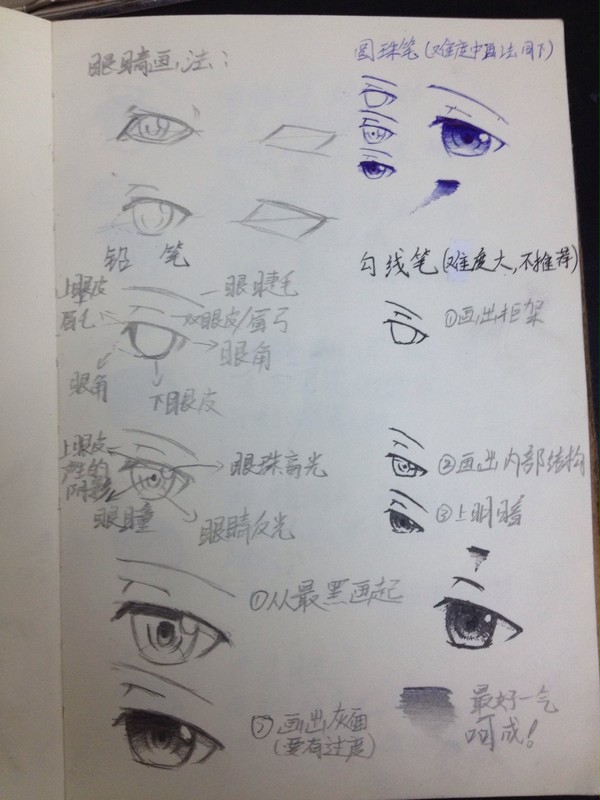 眼睛画法:
圆珠笔(难度中画法同下)
铅 笔
勾线笔(难度大,不推荐)
上眼皮
眼睫毛
眉毛
双眼皮/眉弓
眼角
眼角
下眼皮
①画出框架
上眼皮
产生的
阴影
眼珠高光
眼瞳
眼睛反光
②画出内部结构
③上明暗
①从最黑画起
②画出灰面
(要有过度)
最好一气
呵成!